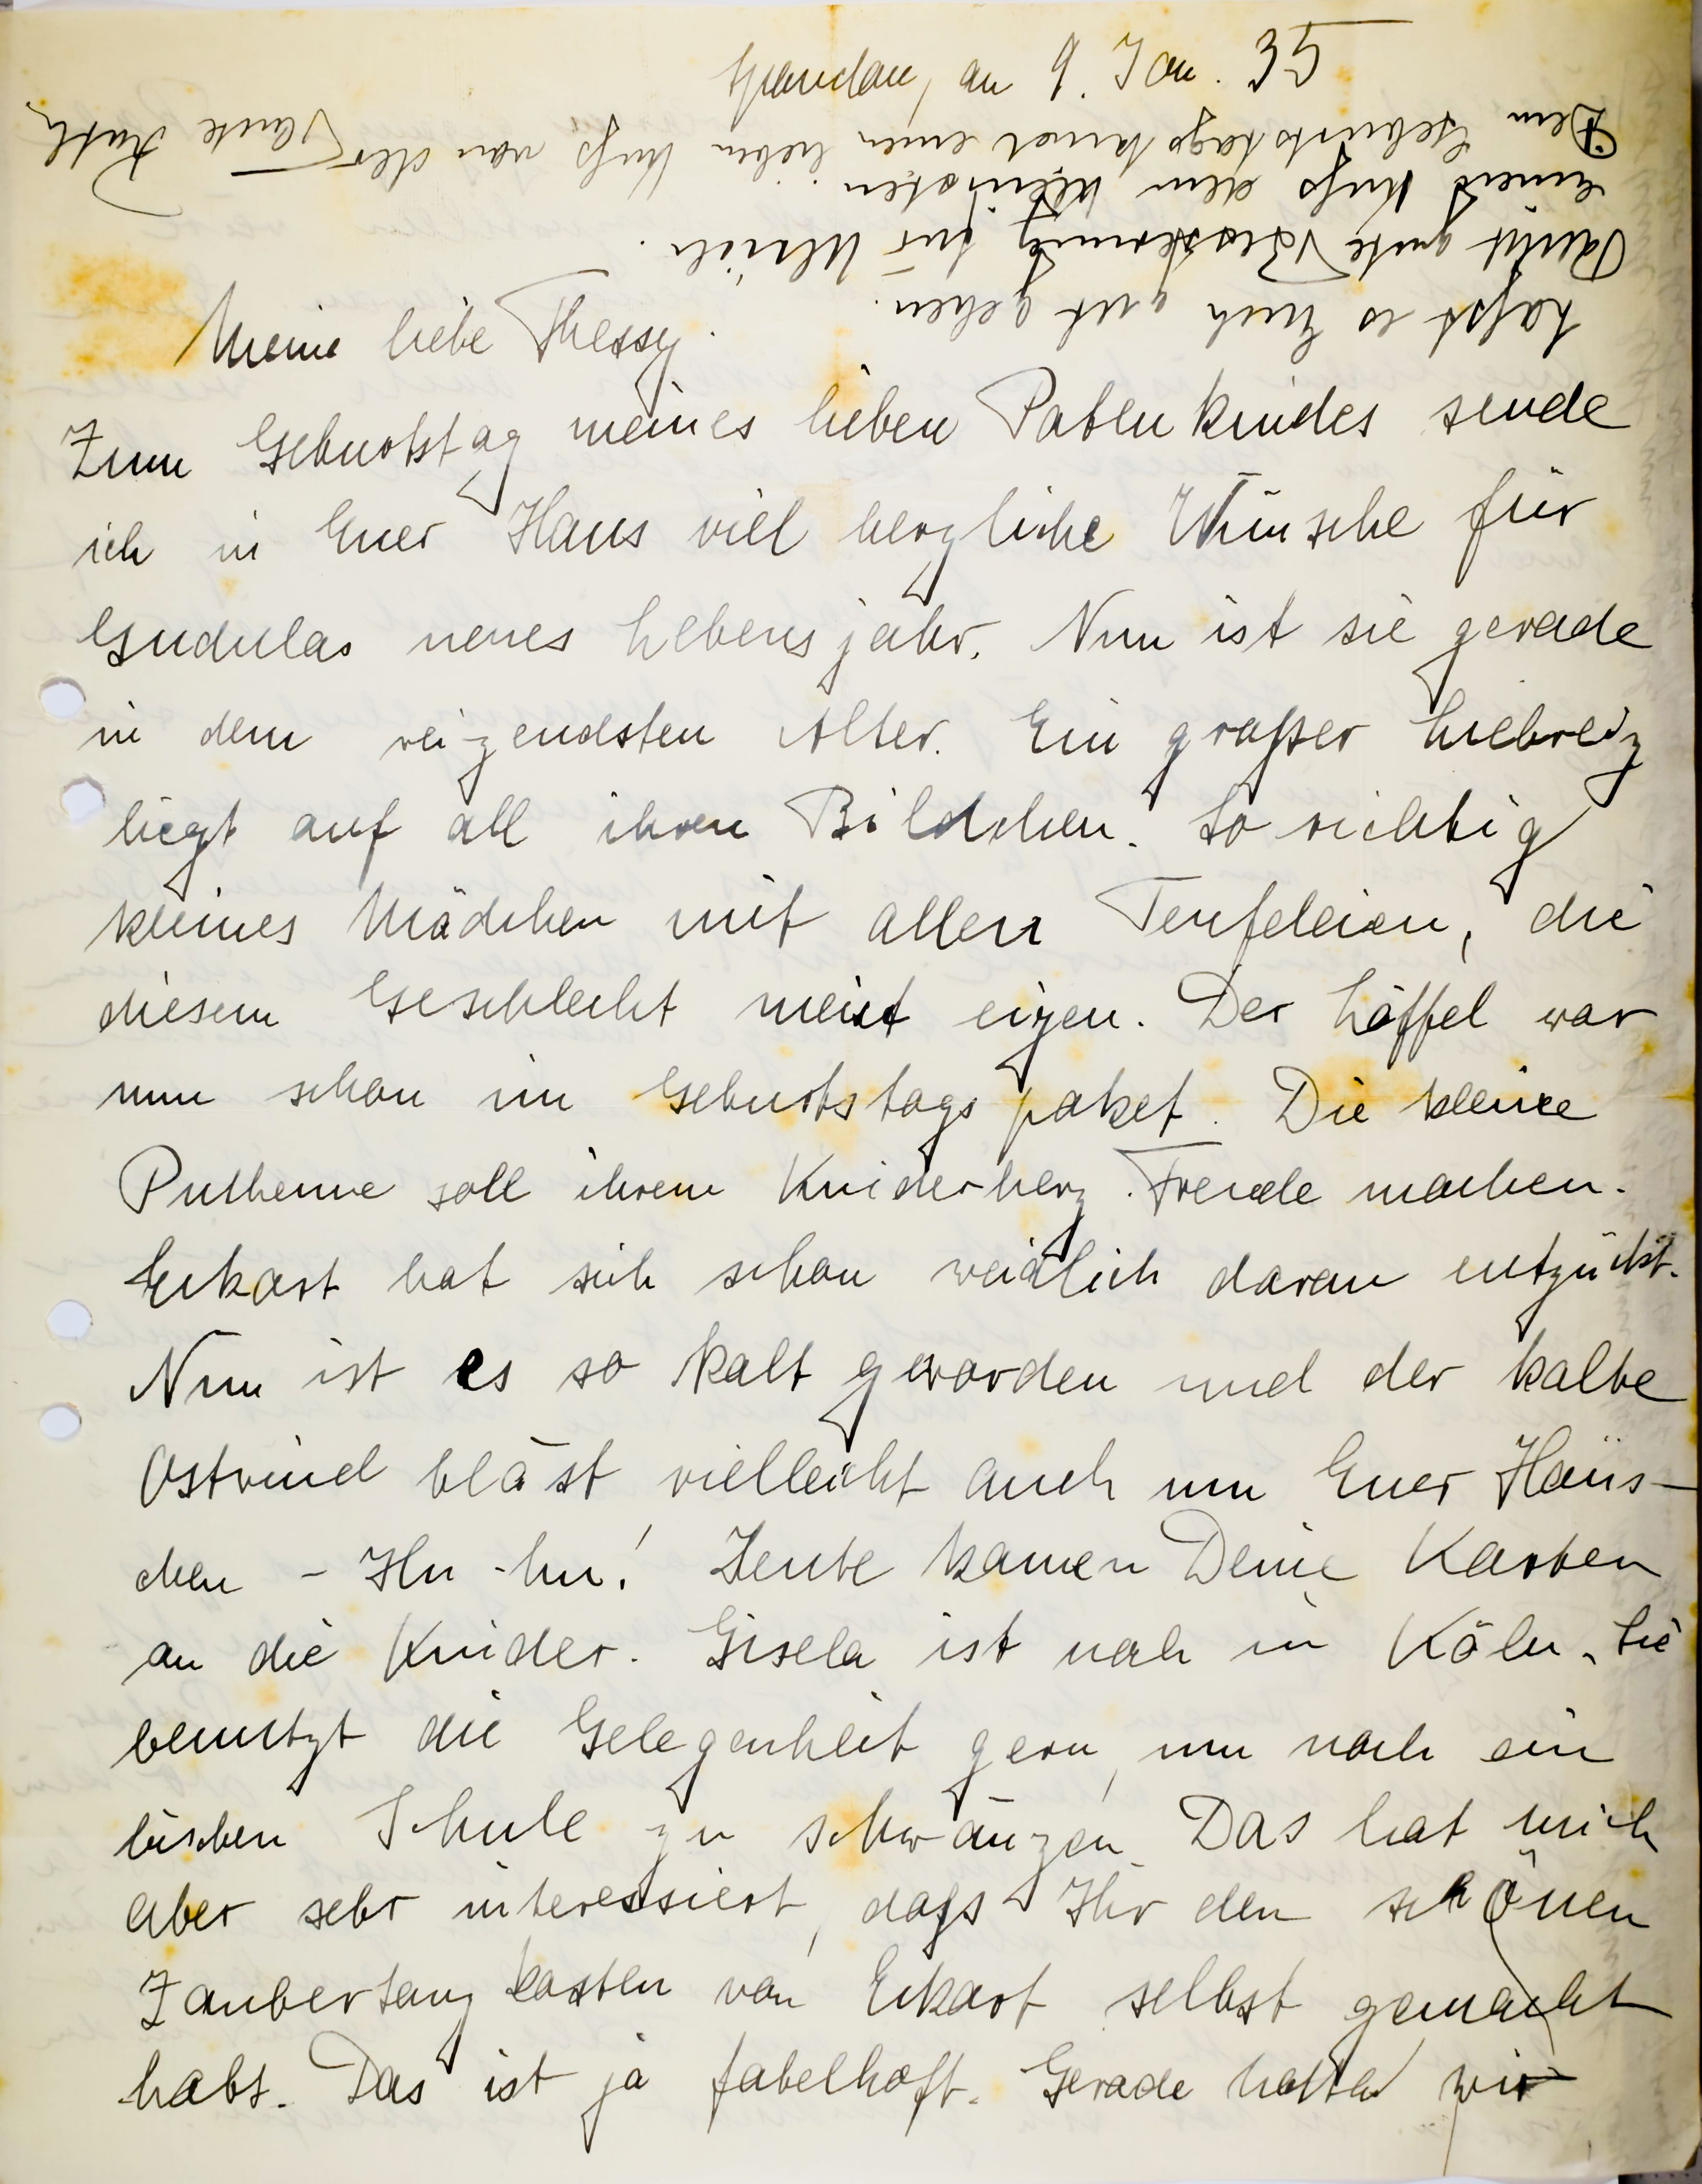 Spandau, an 9. Jan. 35
Meine liebe Thessy.
Zum Geburtstag meines lieben Patenkindes sende
ich in Euer Haus viel herzliche Wünsche für
Gudulas neues Lebensjahr. Nun ist sie gerade
in dem reizendsten Alter. Ein großer Liebreiz
liegt auf all ihren Bildchen. So richtig
kleines Mädchen mit allen Teufeleien, die
diesem Geschlecht meist eigen. Der Löffel war
nun schon im Geburtstagspaket. Die kleine
Puthenne soll ihrem Kinderherz Freude machen.
Eckart hat sich schon weidlich daran entzückt.
Nun ist es so kalt geworden und der kalte
Ostwind bläst vielleicht auch um Euer Häus-
chen - Hu-hu! Heute kamen Deine Karten
an die Kinder. Gisela ist noch in Köln. Sie
benutzt die Gelegenheit gern, um noch ein
bischen Schule zu schwänzen. Das hat mich
aber sehr interessiert, dass Ihr den schönen
Zaubertanzkasten von Eckart selbst gemacht
habt. Das ist ja fabelhaft. Gerade hatten wir
Laßt es Euch gut gehen.
gute Besserung für Ulrich.
einen Kuß dem kleinsten.
Dem Geburtstagskind einen lieben Kuß von der Tante Ruth